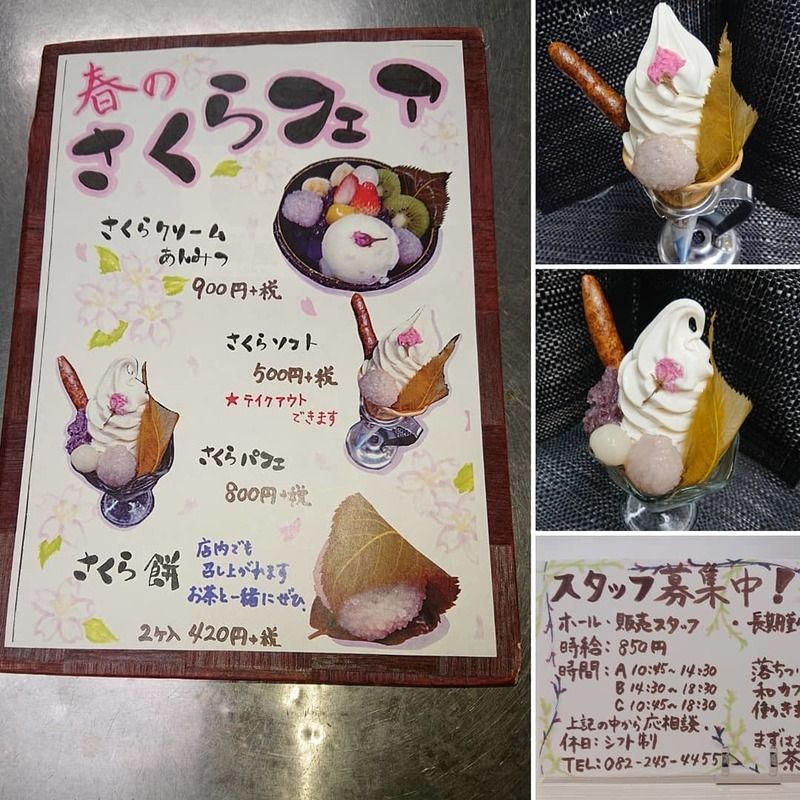 春の
さくらフェア
さくらクリーム
あんみつ
900円+税
さくらソフト
500円+税
★テイクアウト
できます
さくらパフェ
800円+税
さくら餅
店内でも
召し上がれます
お茶と一緒にぜひ、
2ヶ入 420円+税
スタッフ募集中!
ホール・販売スタッフ
時給:850円
時間:A 10:45~14:30
B 14:30~18:30
C 10:45~18:30
上記の中から応相談
休日:シフト制
TEL:082-245-4455
・長期
落ちつ
和カフ
働きま
まずはお
茶